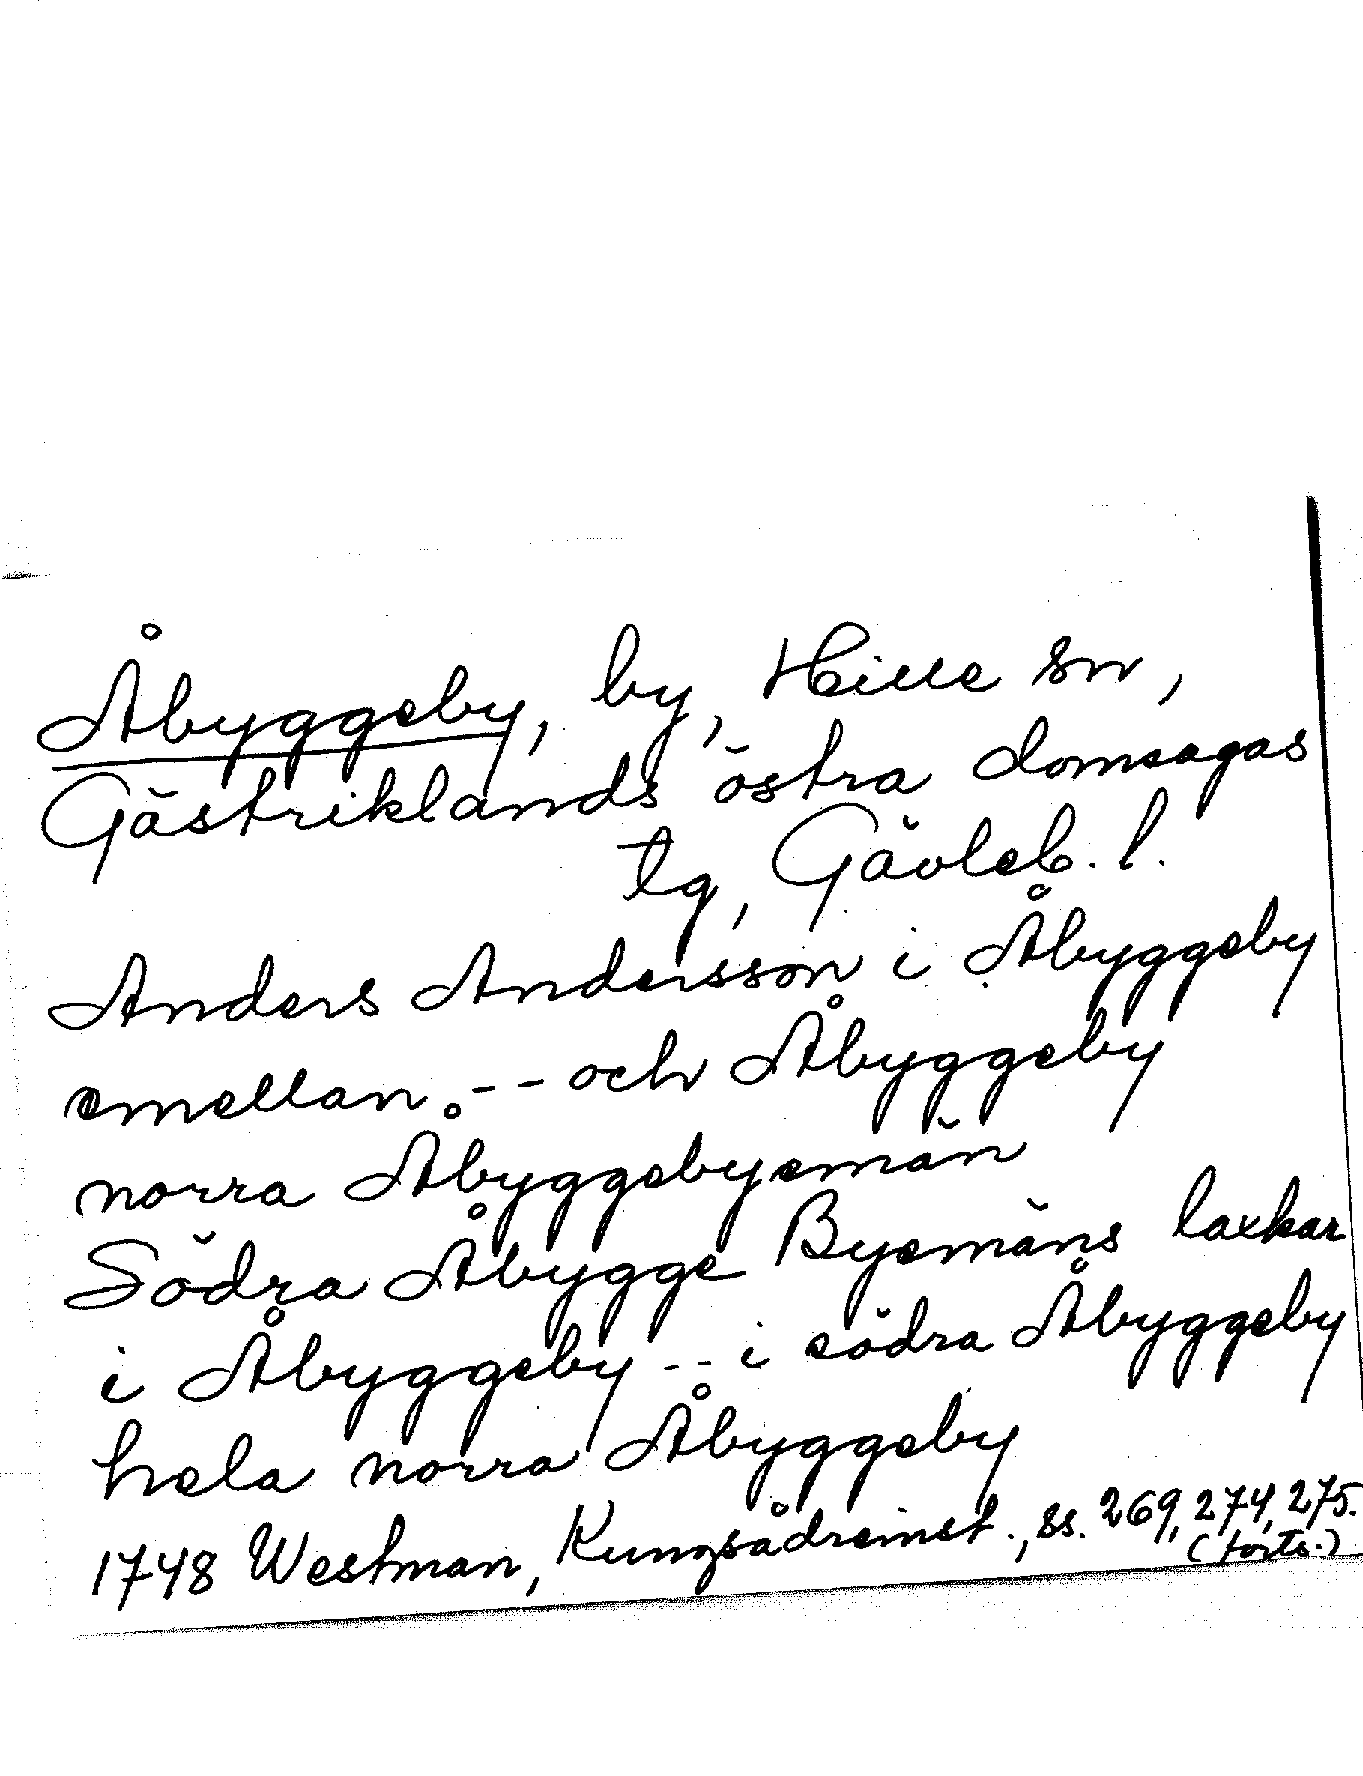 Åbyggeby, by, Hille sn,
Gästriklands östra domsagas
tg, Gävleb. l.
Anders Andersson i Åbyggeby
emellan -- och Åbyggeby
norra Åbyggebyemän
Södra Åbygge Byemäns laxkar
i Åbyggeby -- i södra Åbyggeby
hela norra Åbyggeby
1748 Westman, Kungsådreinst., ss. 269, 274, 275.
(forts.)